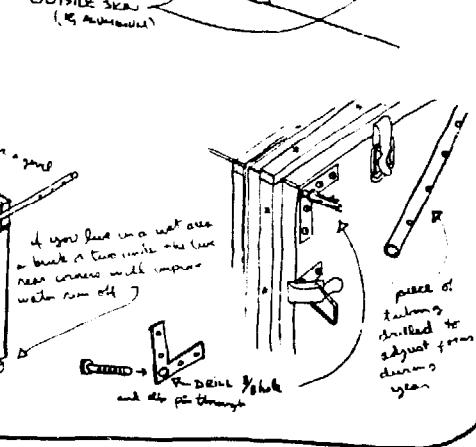 OUTSIDE SKIN
(eg ALUMINIUM)
if you live in a wet area
a brick or two under the two
rear corners will improve
water run off
DRILL 3/8 hole
and slip pin through
piece of
tubing
drilled to
adjust for
during
year